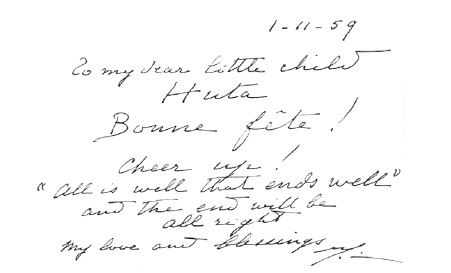 1-11-59
To my dear little child
Huta
Bonne fête!
Cheer up!
"All is well that ends well"
and the end will be
all right
my love and blessings